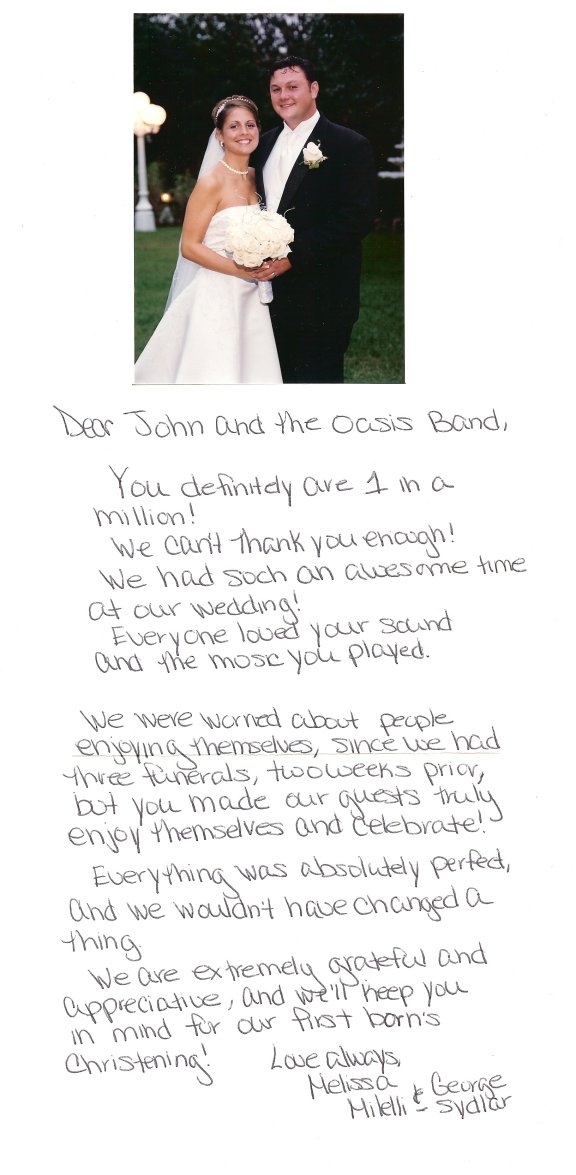 Dear John and the Oasis Band,
You definitely are 1 in a
million!
We can't thank you enough!
We had such an awesome time
at our wedding!
Everyone loved your sound
and the music you played.
We were worried about people
enjoying themselves, since we had
three funerals, two weeks prior,
but you made our guests truly
enjoy themselves and celebrate!
Everything was absolutely perfect,
and we wouldn't have changed a
thing.
We are extremely grateful and
appreciative, and we'll keep you
in mind for our first born's
Christening!
Love always,
Melissa & George
Milelli - Sydlar